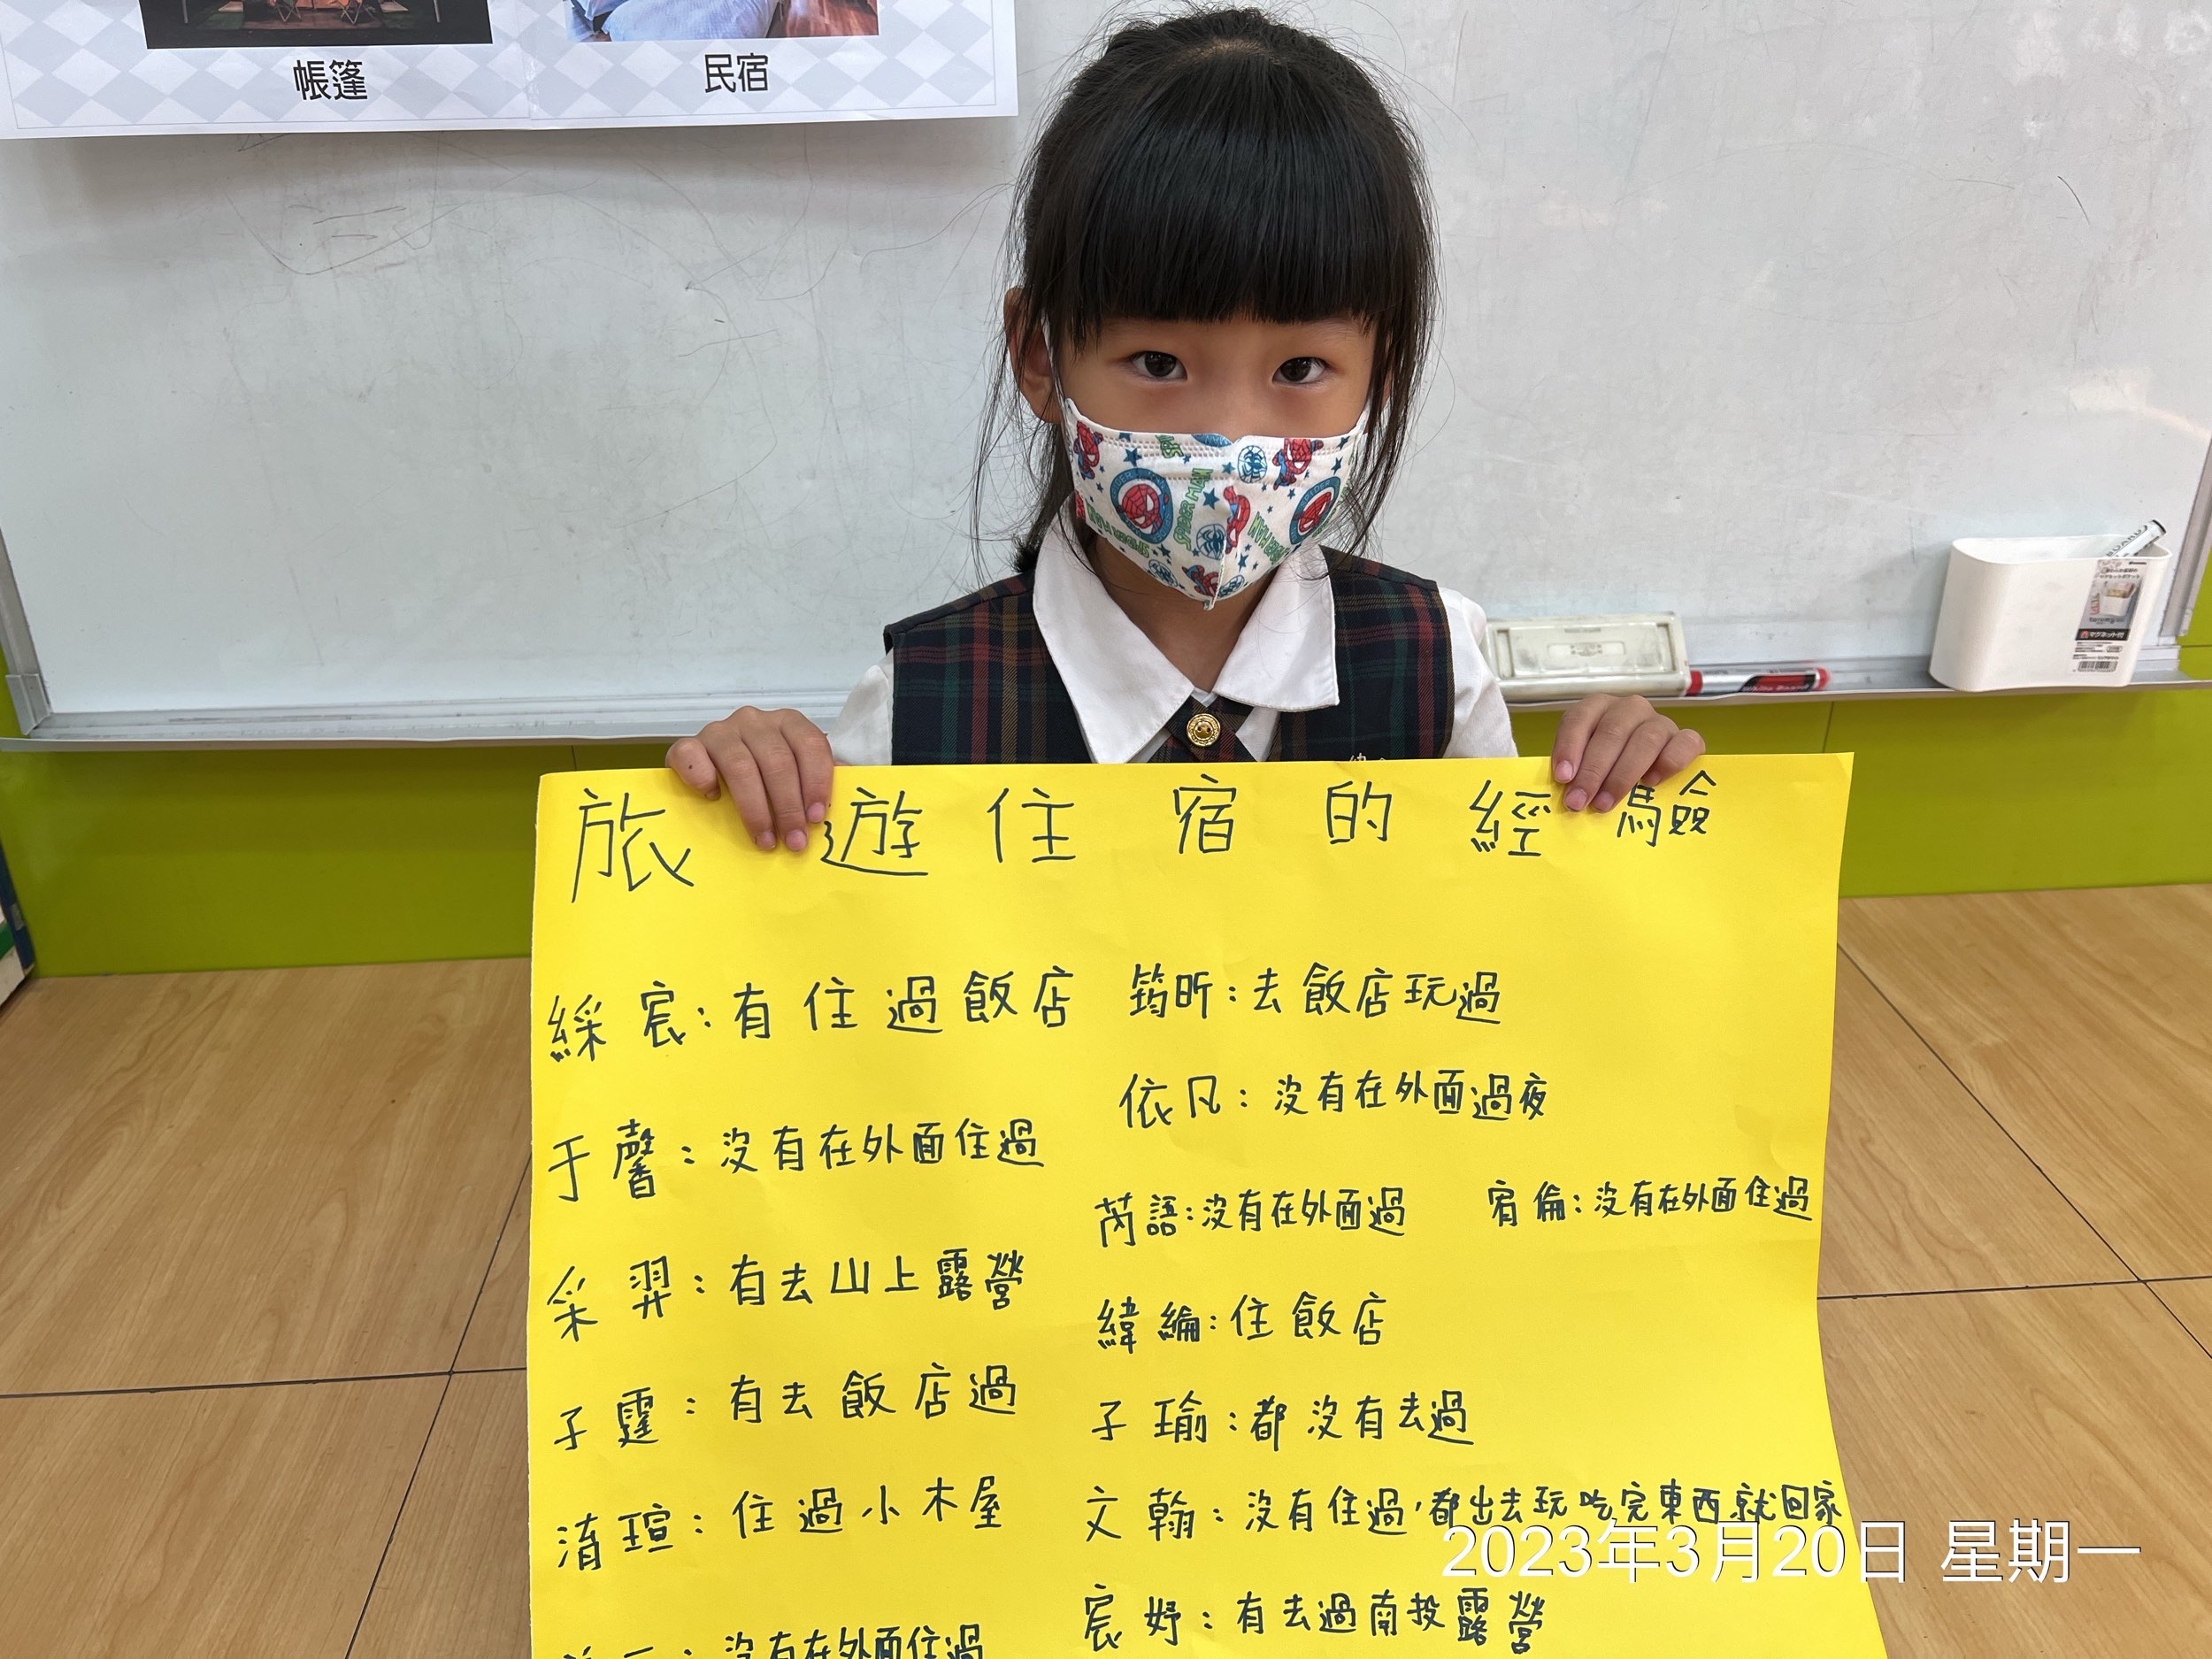 帳篷
民宿
旅遊住宿的經驗
綵宸:有住過飯店
筠昕:去飯店玩過
于馨:沒有在外面住過
依凡:沒有在外面過夜
芮語:沒有在外面過
宥倫:沒有在外面住過
采羿:有去山上露營
緯綸:住飯店
子霆:有去飯店過
子瑜:都沒有去過
淯瑄:住過小木屋
文翰:沒有住過,都出去玩吃完東西就回家
宸妤:有去過南投露營
沒有在外面住過
2023年3月20日 星期一
SPIDER MAN